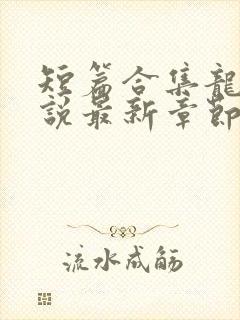 短篇合集龍
說最新章節
流水成觞